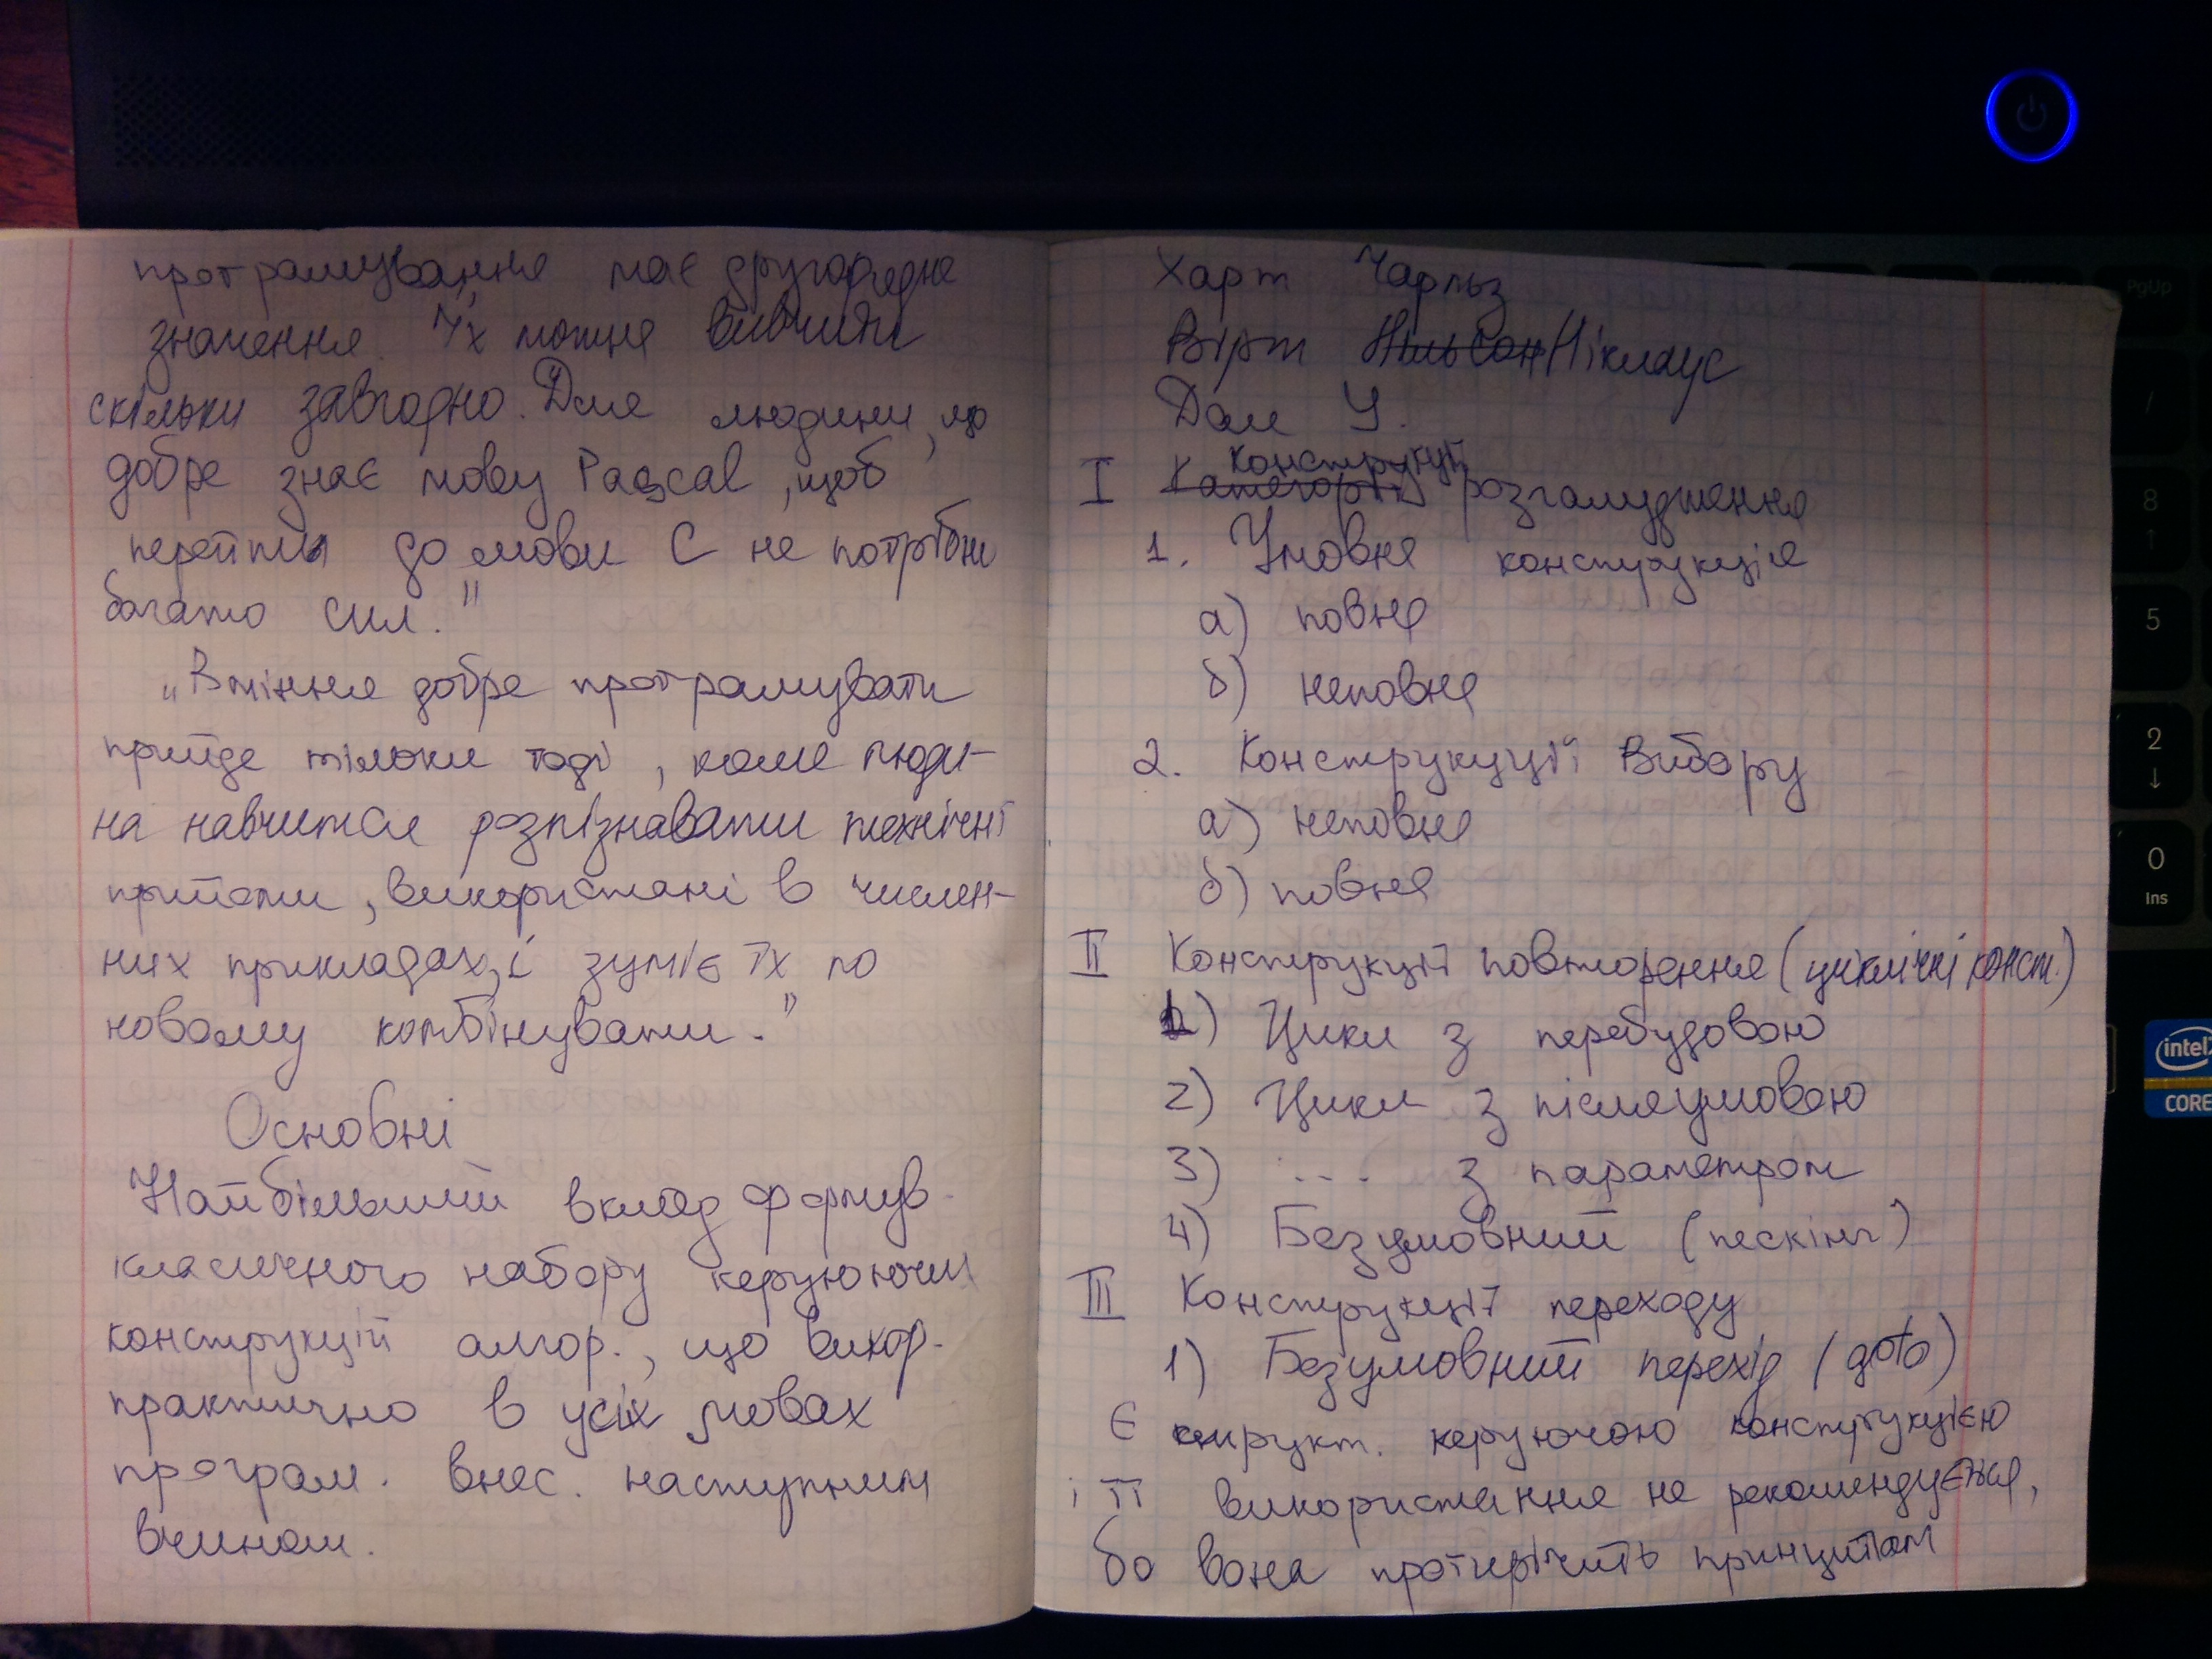 програмування має другорядне
значення. Їх можна вивчити
скільки завгодно. Для людини, що
добре знає мову Pascal, щоб
перейти до мови С не потрібно
багато сил."
„Вміння добре програмувати
прийде тільки тоді, коли люди-
на навчиться розпізнавати технічні
прийоми, використані в числен-
них прикладах, і зуміє їх по
новому комбінувати."
Основні
Найбільший вклад формув.
класичного набору керуючих
конструкцій алгор., що викор.
практично в усіх мовах
програм. внес. наступним
вчином.
Харт Чарльз
Вірт Нільсон Ніклаус
Дал У.
I Категорії конструкції розгалудження
1. Умовна конструкція
а) повна
б) неповна
2. Конструкуції вибору
а) неповна
б) повна
II Конструкції повторення (циклічні конст.)
1) Цикл з перебудовою
2) Цикл з післяумовою
3) ... з параметром
4) Безумовний (пескінч)
III Конструкції переходу
1) Безумовний перехід (goto)
Є структ. керуючою конструкцією
і її використання не рекомендується,
бо вона протирічить принципам
PgUp
/
8
↑
5
2
↓
0
Ins
intel
CORE